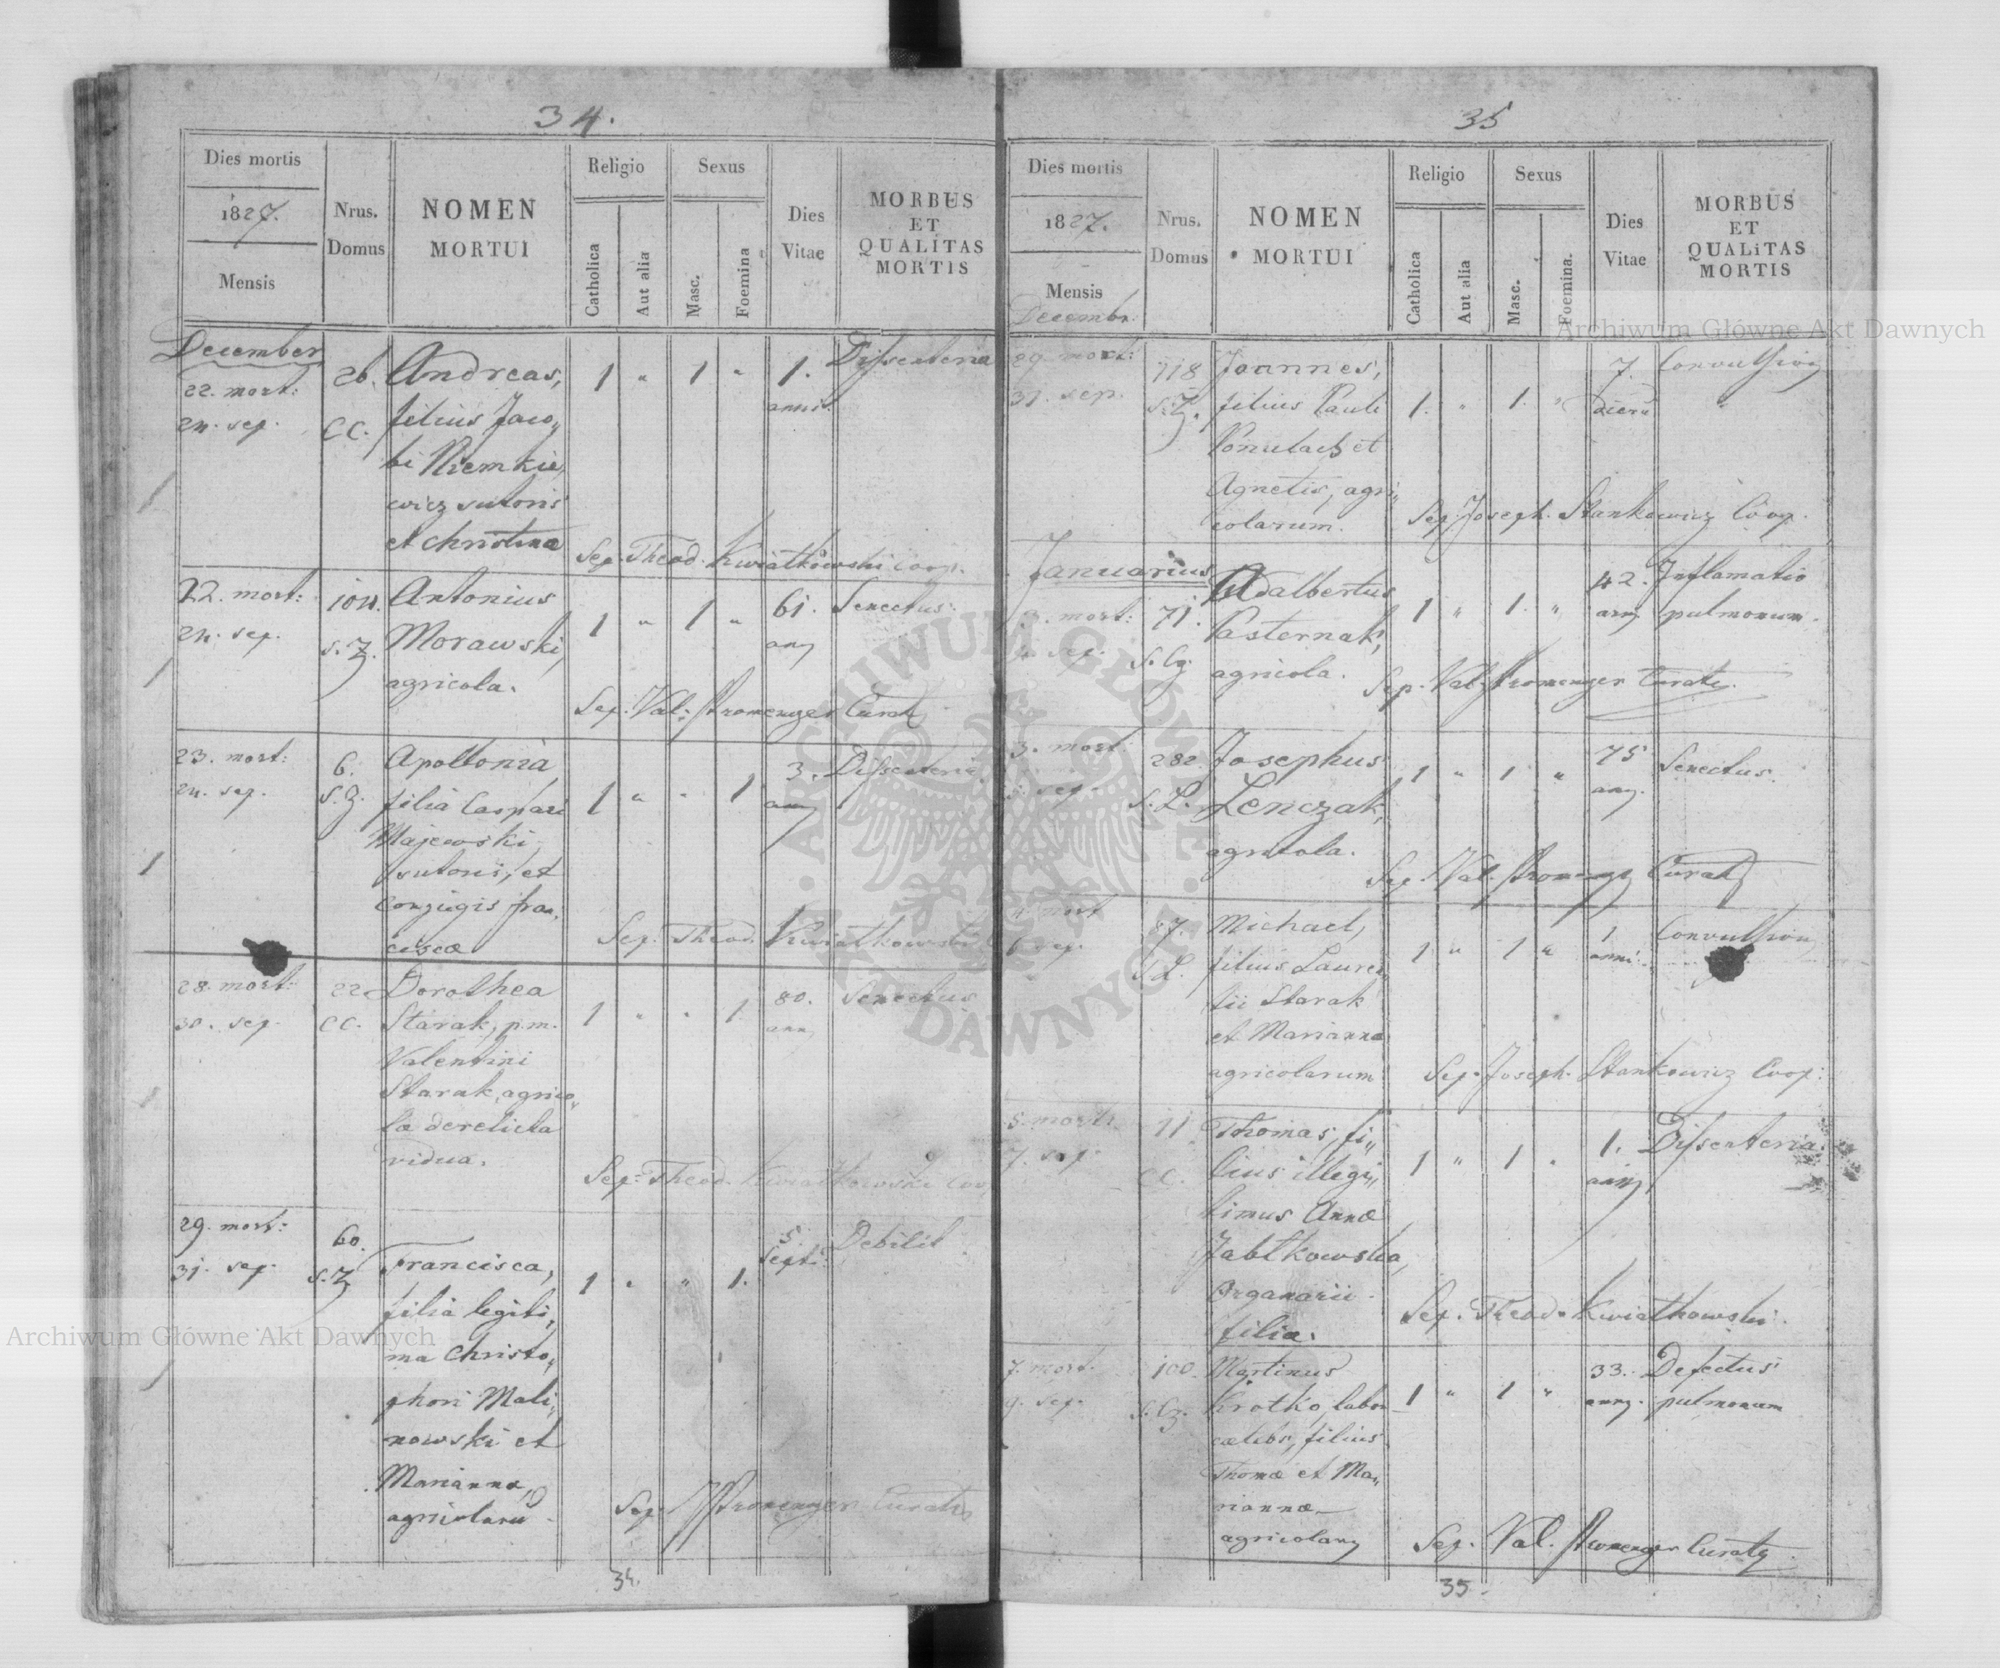 34.
Dies mortis
1827.
Mensis
Nrus.
Domus
NOMEN
MORTUI
Religio
Catholica
Aut alia
Sexus
Masc.
Foemina
Dies
Vitae
MORBUS
ET
QUALITAS
MORTIS
December
22. mort:
24. sep.
26.
CC.
Andreas,
filius Jaco„
bi Niemkie„
wicz sutoris
et Christina
1 " 1 "
1.
anni.
Dissenteria
Sep. Theod. Kwiatkowski Coop.
22. mort:
24. sep.
104.
S.Z.
Antonius
Morawski,
agricola.
1 " 1 "
61.
ann
Senectus.
Sep. Val: Stromenger Curat
23. mort:
24. sep.
6.
S.Z.
Apollonia
filia Caspari
Majewski
sutoris, et
Conjugis Fran„
ciscæ
1 " " 1
3.
ann
Dissenteria
Sep. Theod. Kwiatkowski
28. mort:
30. sep.
22
CC.
Dorothea
Starak, p.m.
Valentini
Starak, agrico„
læ derelicta
vidua.
1 " " 1
80.
ann
Senectus
Sep. Theod. Kwiatkowski Coop
29. mort:
31. sep.
60.
S.Z
Francisca,
filia legiti„
ma Christo„
phori Mali„
nowski et
Marianna,
agricolaru
1 " " 1.
5.
Sept:
Debilit
Sep. Stromenger Curat
34.
35
Dies mortis
1827.
Mensis
Nrus.
Domus
NOMEN
MORTUI
Religio
Catholica
Aut alia
Sexus
Masc.
Foemina.
Dies
Vitae
MORBUS
ET
QUALITAS
MORTIS
Decembr.
29. mort:
31. sep.
118
S.Z.
Joannes,
filius Pauli
et
Agnetis, agri„
colarum.
1. " 1. "
7.
dieru
Convulsion
Sep. Joseph. Stankowicz Coop.
Januarius
mort:
sep.
71.
S. Cz.
Adalbertus
Pasternak,
agricola.
1 " 1. "
42.
ann
Inflamatio
pulmonum.
Sep. Val. Stromenger Curat.
3. mort
5. sep.
282.
S. L.
Josephus
Lenczak,
agricola.
1 " 1 "
75
ann.
Senectus.
Sep. Val. Stromeng Curat
4. mort
6. sep.
87.
S.L.
Michael,
filius Lauren
tii Starak
et Marianna
agricolarum
1 " 1 "
1
anni.
Convulsion
Sep. Joseph. Stankowicz Coop:
5. mort:
7. sep.
11
CC.
Thomas, fi„
lius illegi„
timus Annæ
Jabłkowska,
Organarii
filia.
1 " 1 "
1.
ann
Dissenteria.
Sep. Theod. Kwiatkowski.
7. mort.
9. sep.
100.
S. Cz.
Martinus
Krotko, labor
cælebs, filius
Thomæ et Ma„
riannæ
agricolaru
1 " 1 "
33.
ann.
Defectus
pulmonum
Sep. Val. Stromenger Curat
35.
Archiwum Główne Akt Dawnych
Archiwum Główne Akt Dawnych
ARCHIWUM GŁÓWNE
AKT DAWNYCH